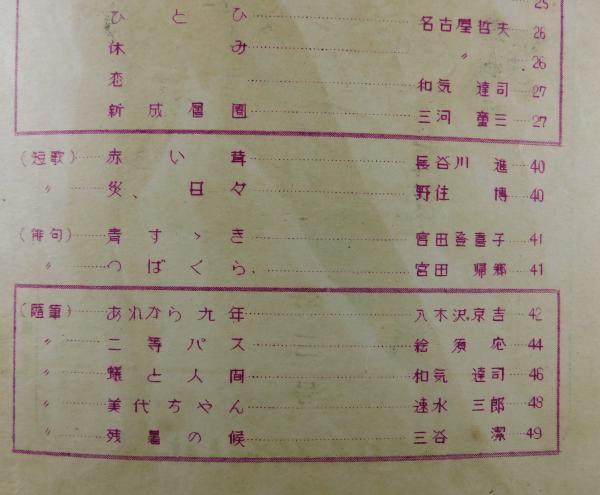 25
ひとひ 名古屋哲夫 26
休み 〃 26
恋 和気達司 27
新成層圏 三河童三 27
(短歌) 赤い茸 長谷川進 40
〃 炎、日々 野住博 40
(俳句) 青すゝき 宮田登喜子 41
〃 つばくら 宮田帰郷 41
(随筆) あれから九年 八木沢京吉 42
〃 二等パス 絵須応 44
〃 蟻と人間 和気達司 46
〃 美代ちやん 速水三郎 48
〃 残暑の候 三谷潔 49